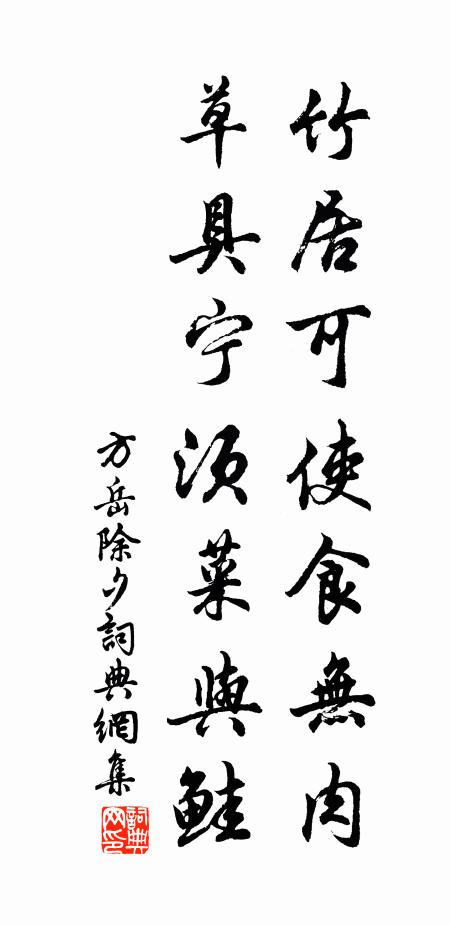 竹居可使食無肉
草具宁須菜與鮭
方岳除夕詞典網集
詞典
网印